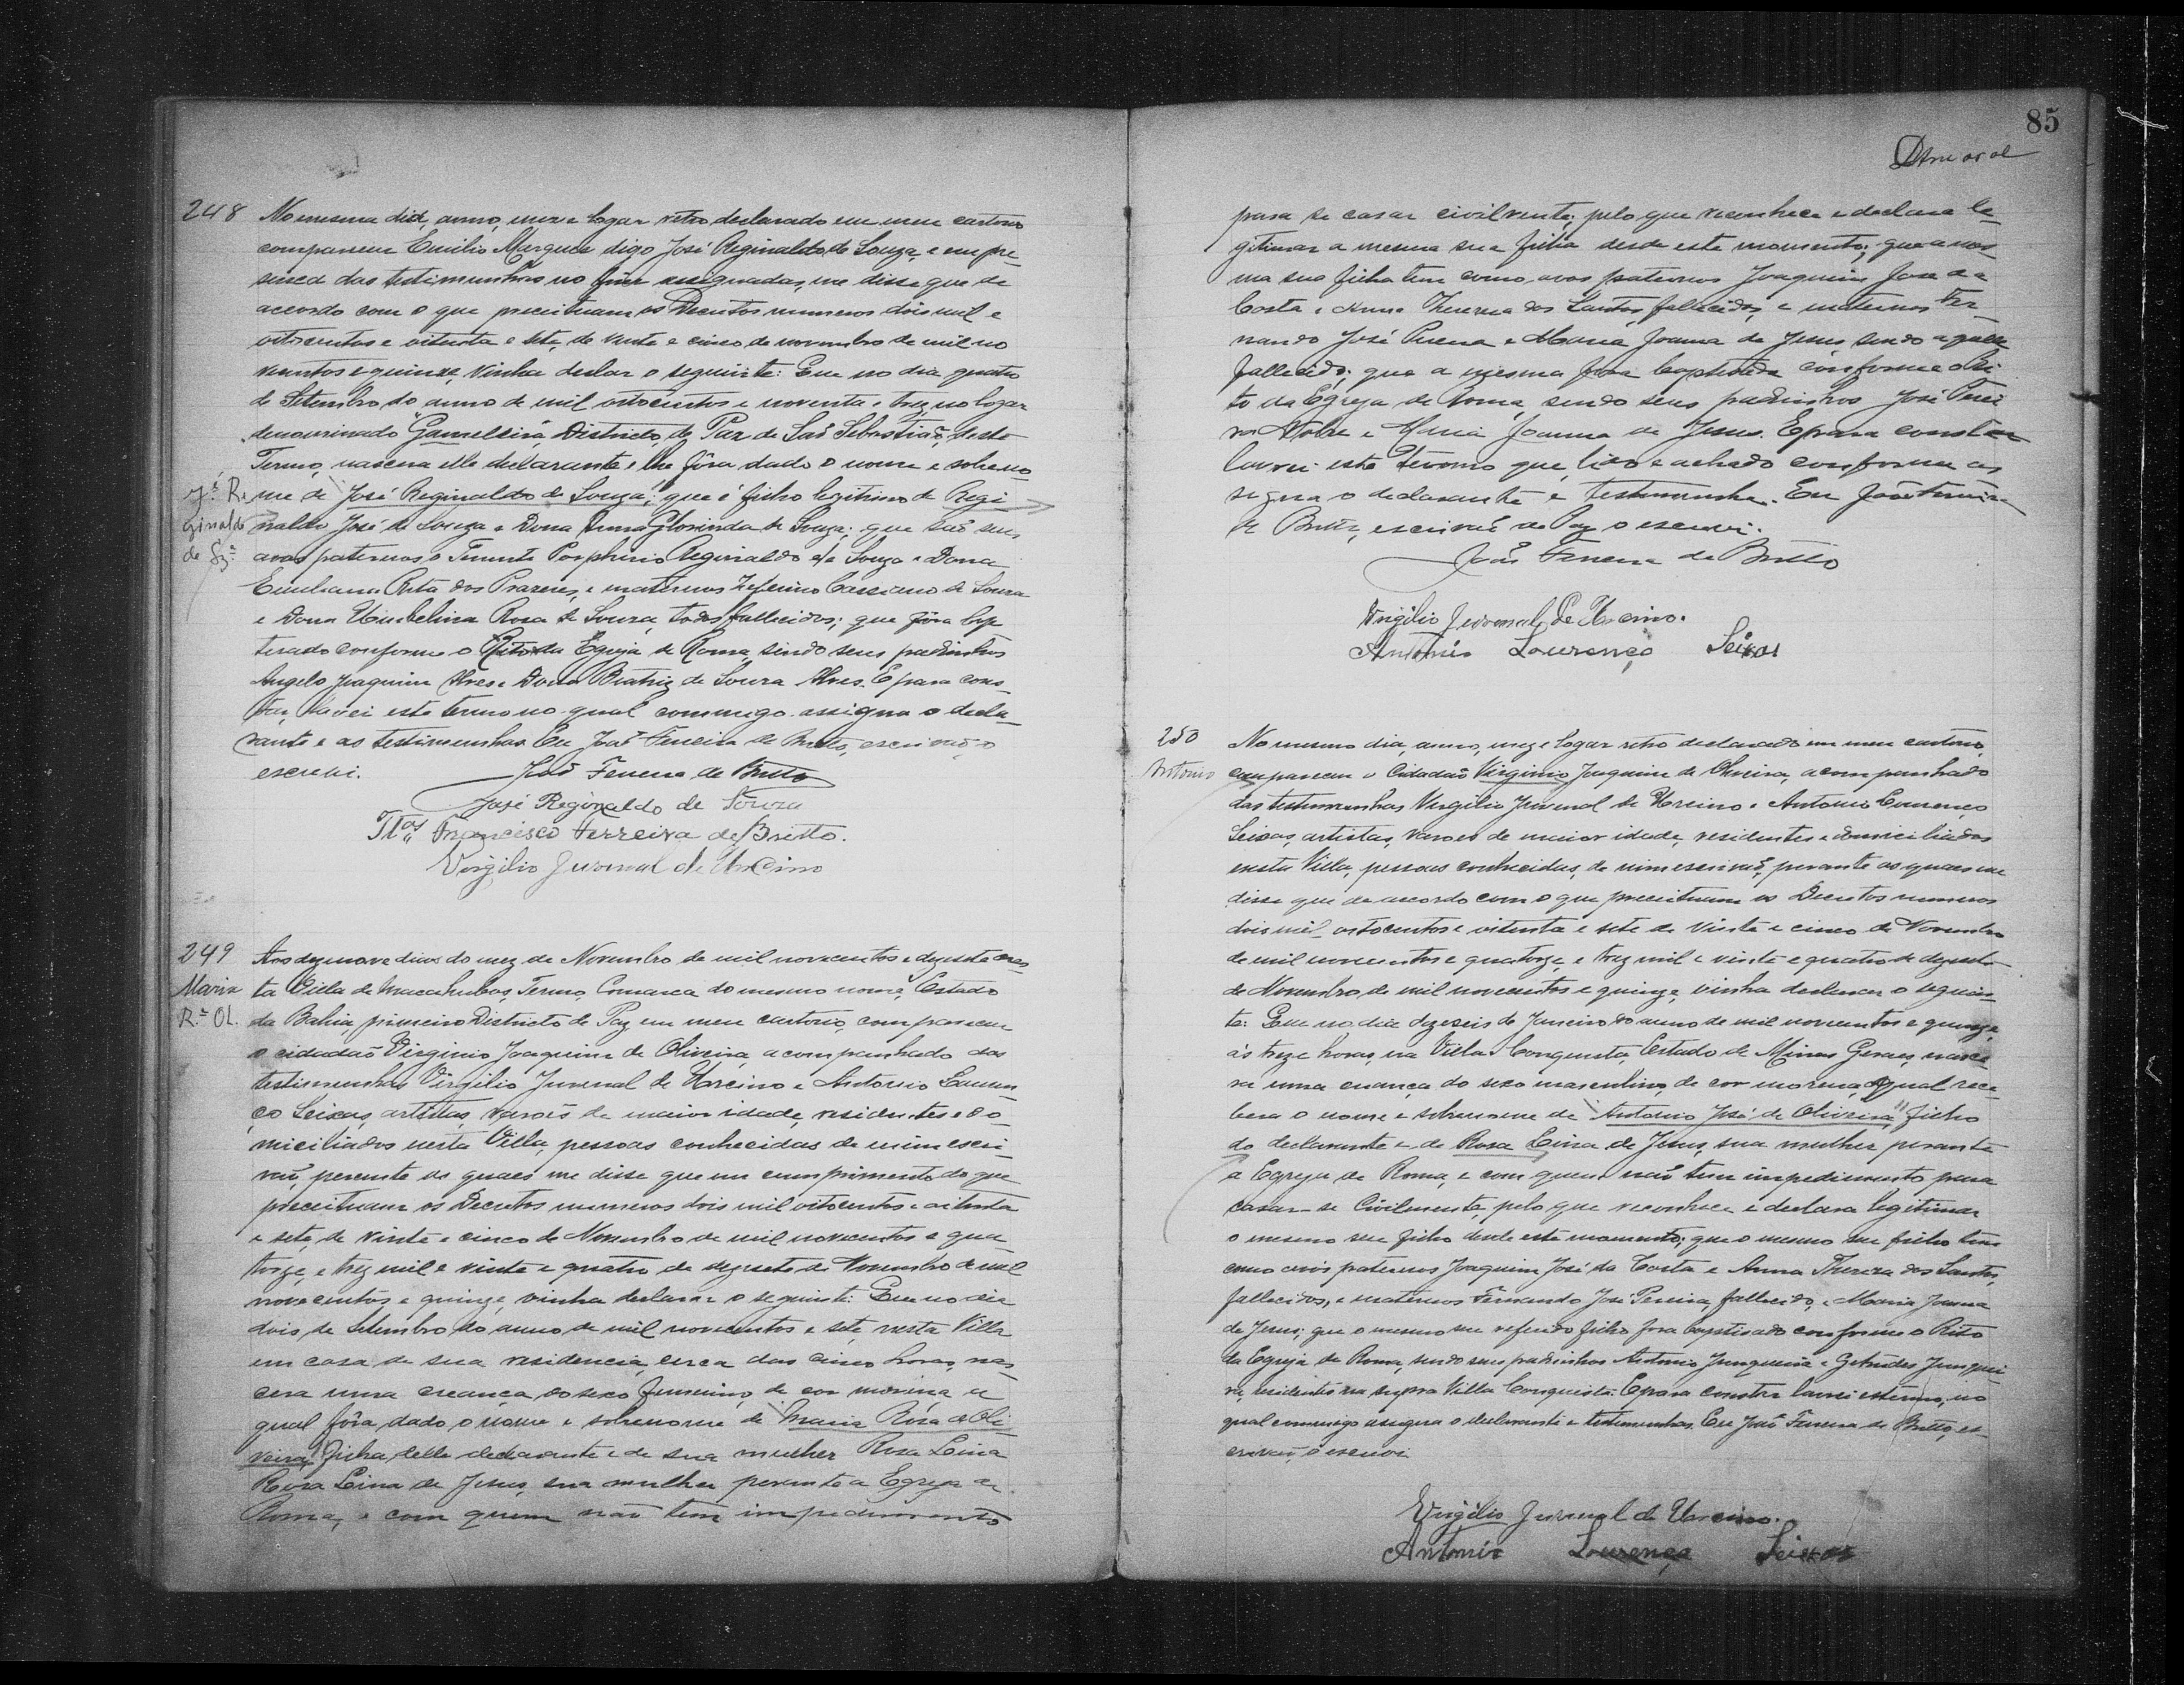 248 No mesmo dia, anno, mez e logar retro declarado em meu cartorio
compareceu Emilio Marques digo José Reginaldo de Souza, e em pre-
sença das testimunhas no fim assignadas, me disse que de
accordo com o que preceituam os Decretos numeros dois mil e
oitocentos e oitenta e sete, de vinte e cinco de novembro de mil no
vecentos e quinze, vinha declar o seguinte: Que no dia quatro
de Setembro do anno de mil oitocentos e noventa e trez, no logar
denominado "Gamelleira, Districto de Paz de São Sebastião, deste
Termo, nascera elle declarante e lhe fôra dado o nome e sobreno
me de "José Reginaldo de Souza"; que é filho legitimo de Regi-
Jé. Re
ginaldo
de Sza
naldo José de Souza e Dona Anna Florinda de Souza; que são seus
avos paternos o Tenente Porphirio Reginaldo de Souza e Dona
Emiliana Rita dos Prazeres, e maternos Zeferino Cassiano de Souza
e Dona Umbelina Rosa de Souza, todos fallecidos; que fôra bap
tisado conforme o Rito da Egreja de Roma, sendo seus padrinhos
Angelo Joaquim Alves e Dona Beatriz de Souza Alves. E para cons-
tar, lavrei este termo no qual commigo assigna o decla-
rante e as testimunhas. Eu João Ferreira de Britto, escrivão o
escrevi. João Ferreira de Britto
José Reginaldo de Souza
Ttas Francisco Ferreira de Britto.
Virgilio Juvenal de Urcino
249 Aos dezenove dias do mez de Novembro de mil novecentos e dezesete nes-
Maria
Ra Ol.
ta Villa de Macahubas, Termo, Comarca do mesmo nome, Estado
da Bahia, primeiro Districto de Paz em meu cartorio, compareceu
o cidadão Virginio Joaquim de Oliveira, acompanhado das
testimunhas Virgilio Juvenal de Urcino e Antonio Louren
ço Seixas, artistas, varoes de maior idade, residentes e do-
miciliados nesta Villa, pessoas conhecidas de mim escri-
vaõ, perante as quaes me disse que em cumprimento do que
preceituam os Decretos numeros dois mil oitocentos e oitenta
e sete, de vinte e cinco de Novembro de mil novecentos e qua
torze, e trez mil e vinte e quatro de dezesete de Novembro de mil
novecentos e quinze, vinha declarar o seguinte: Que no dia
dois de Setembro do anno de mil novecentos e sete nesta Villa
em casa de sua residencia, cerca das cinco horas, nas-
cera uma creança, do sexo femenino, de cor morena a
qual fôra dado o nome e sobrenome de "Maria Rosa de Oli-
veira" filha delle declarante e de sua mulher Rosa Lina
Rosa Lina de Jesus, sua mulher perante a Egreja de
Roma, e com quem não tem impedimento
85
Amaral
para se casar civilmente; pelo que reconhece e declara le-
gitimar a mesma sua filha desde este momento; que a mes-
ma sua filha tem como avos paternos Joaquim José da
Costa e Anna Thereza dos Santos, fallecidos, e maternos Fer-
nando José Pereira e Maria Joanna de Jesus, sendo aquelle
fallecido; que a mesma fora baptisada conforme o Ri-
to da Egreja de Roma, sendo seus padrinhos José Perei
ra Nobre e Maria Joanna de Jesus. E para constar
lavrei este termo que, lido e achado conforme as
signa o declarante e testimunha. Eu João Ferreira
de Britto, escrivão de Paz o escrevi.
João Ferreira de Britto
Virgilio Juvenal de Urcino.
Antonio Lourenço Seixas
250 No mesmo dia, anno, mez e logar retro declarado em meu cartorio,
Antonio
compareceu o Cidadão Virginio Joaquim de Oliveira, acompanhado
das testimunhas Virgilio Juvenal de Urcino e Antonio Lourenço
Seixas, artistas, varoes de maior idade, residentes e domiciliados
nesta Villa, pessoas conhecidas, de mim escrivaõ, perante as quaes me
disse que de accordo com o que preceituam os Decretos numeros
dois mil oitocentos e oitenta e sete de vinte e cinco de Novembro
de mil novecentos e quatorze, e trez mil e vinte e quatro de dezesete
de Novembro de mil novecentos e quinze, vinha declarar o seguin-
te: Que no dia dezeseis de Janeiro do anno de mil novecentos e quinze,
ás treze horas, na Villa Conquista, Estado de Minas Geraes, nasce
ra uma creança do sexo masculino, de cor morena, a qual rece
bera o nome e sobrenome de "Antonio José de Oliveira," filho
do declarante e de Rosa Lina de Jesus, sua mulher perante
a Egreja de Roma, e com quem não tem impedimento para
casar-se Civilmente, pelo que reconhece e declara legitimar
o mesmo seu filho desde este momento; que o mesmo seu filho tem
como avós paternos Joaquim José da Costa e Anna Thereza dos Santos,
fallecidos, e maternos Fernando José Pereira, fallecido, e Maria Joanna
de Jesus; que o mesmo seu referido filho fora baptisado conforme o Rito
da Egreja de Roma, sendo seus padrinhos Antonio Junqueira e Getrudes Junquei
ra, residentes na supra Villa Conquista. E para constar lavrei este termo, no
qual commigo assigna o declarante e testimunhas. Eu João Ferreira de Britto, es-
crivaõ, o escrevi
Virgilio Juvenal de Urcino.
Antonio Lourenço Seixas